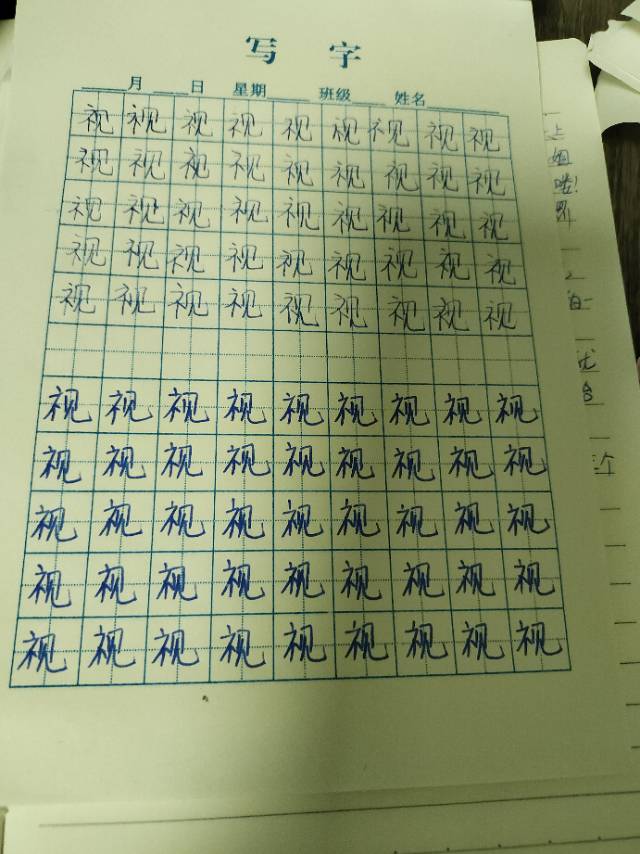 写 字
月 日 星期 班级 姓名
视 视 视 视 视 视 视 视 视
视 视 视 视 视 视 视 视 视
视 视 视 视 视 视 视 视 视
视 视 视 视 视 视 视 视 视
视 视 视 视 视 视 视 视 视
视 视 视 视 视 视 视 视 视
视 视 视 视 视 视 视 视 视
视 视 视 视 视 视 视 视 视
视 视 视 视 视 视 视 视 视
视 视 视 视 视 视 视 视 视